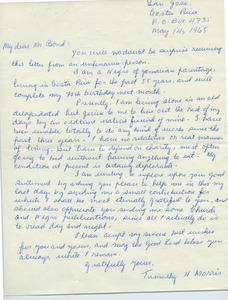 San José,
Costa Rica
P.O. Box 4735
May 14, 1965
My dear Mr Bond:
You will no doubt be surprise receiving
this letter from an unknown person.
I am a Negro of Jamaican parentage,
living in Costa Rica for the past 55 years, and will
complete my 70th birthday next month.
Presently, I am living alone in an old
delapidated but given to me to live out the rest of my
days by an oldtime native friend of mine. I have
been unable totally to do any kind of work since the
past three years. I have no relatives or real income
of living but have to depend on charity, most often
going to bed without having anything to eat. My
condition at present is entirely deplorable.
I am writing to impose upon your good
sentiment by asking you please to help me in this my
last days by sending me a small contribution for
which I shall be most eternally grateful to you, and
should also appreciate your sending me some Church
and Negro publications, since all I actually do is
to read day and night.
Please accept my sincere best wishes
for you and yours, and may the Good Lord bless you
always, while I remain.
Gratefully yours,
Timothy N. Morris